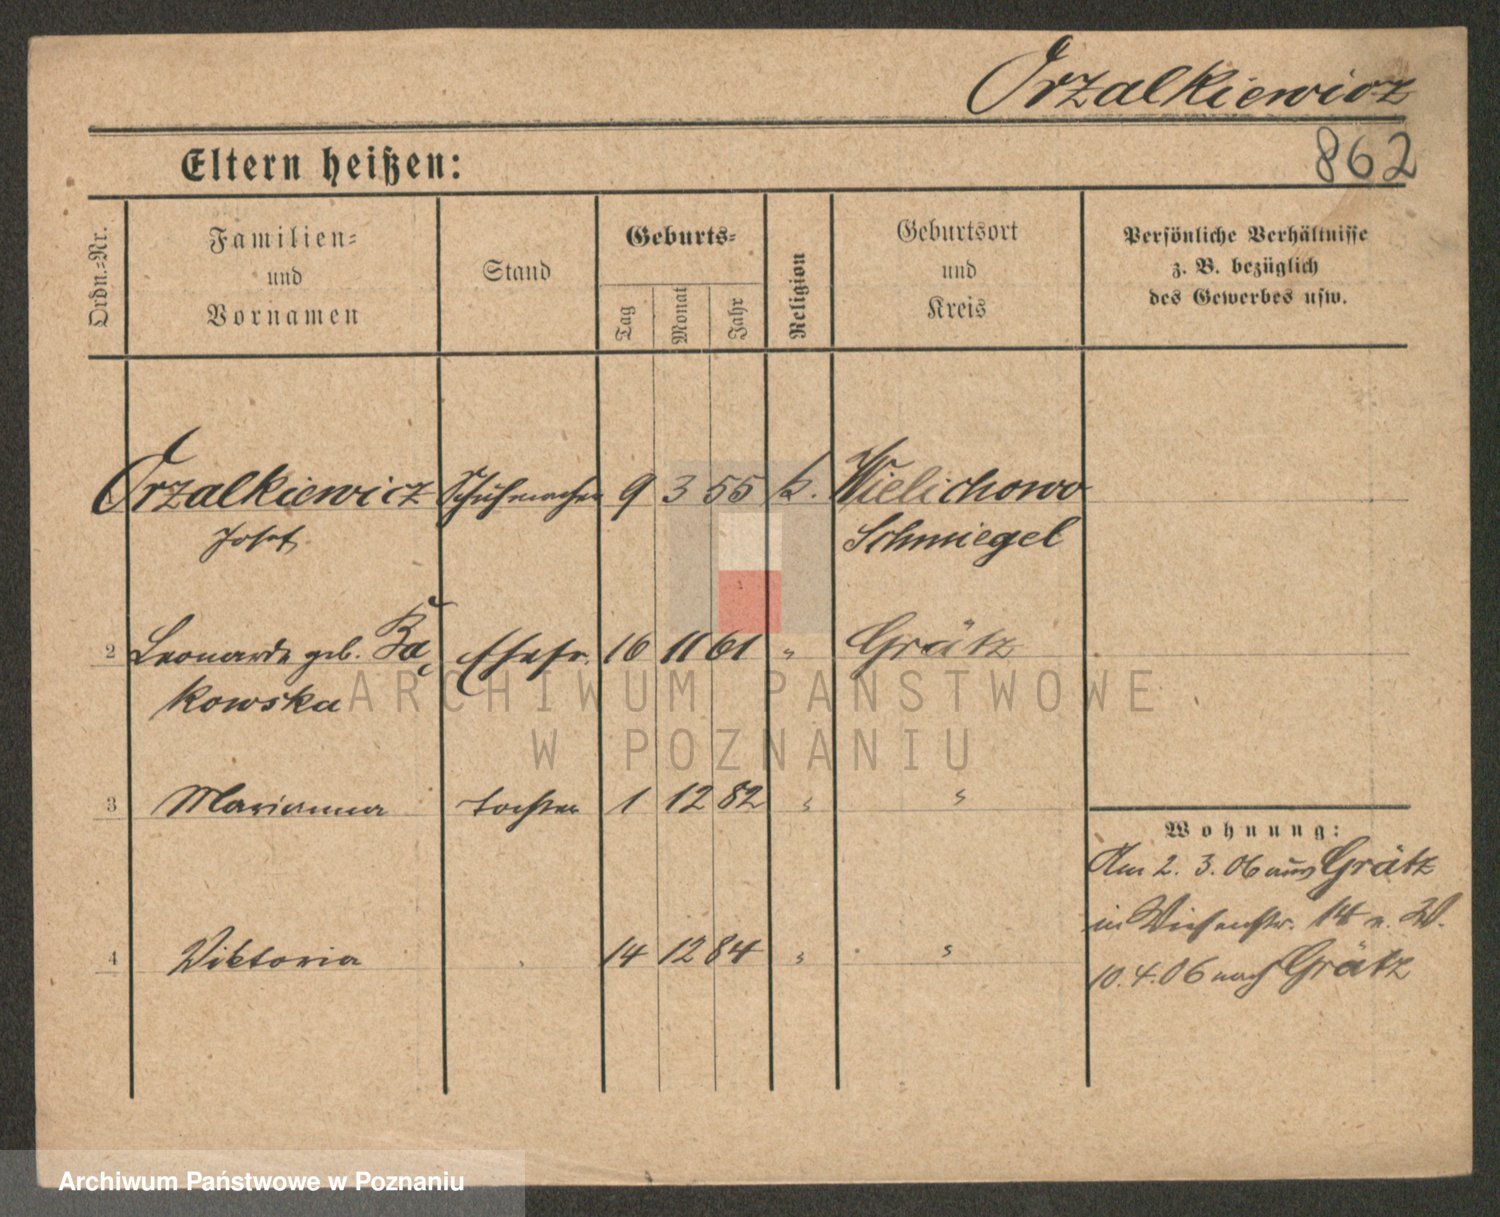 Orzalkiewicz
862
Eltern heißen:
Ordn.-Nr.
Familien-
und
Vornamen
Stand
Geburts-
Tag
Monat
Jahr
Religion
Geburtsort
und
Kreis
Persönliche Verhältnisse
z. B. bezüglich
des Gewerbes usw.
Orzalkiewicz Schuhmacher 9 3 55 k. Wielichowo
Josef Schmiegel
2 Leonarda geb. Ba Ehefr. 16 11 61 " Grätz
kowska
3 Marianna Tochter 1 12 82 " "
4 Viktoria 14 12 84 " "
Wohnung:
Am 2. 3. 06 aus Grätz
in Wiesenstr. 14 n. W.
10. 4. 06 nach Grätz
ARCHIWUM PAŃSTWOWE
W POZNANIU
Archiwum Państwowe w Poznaniu